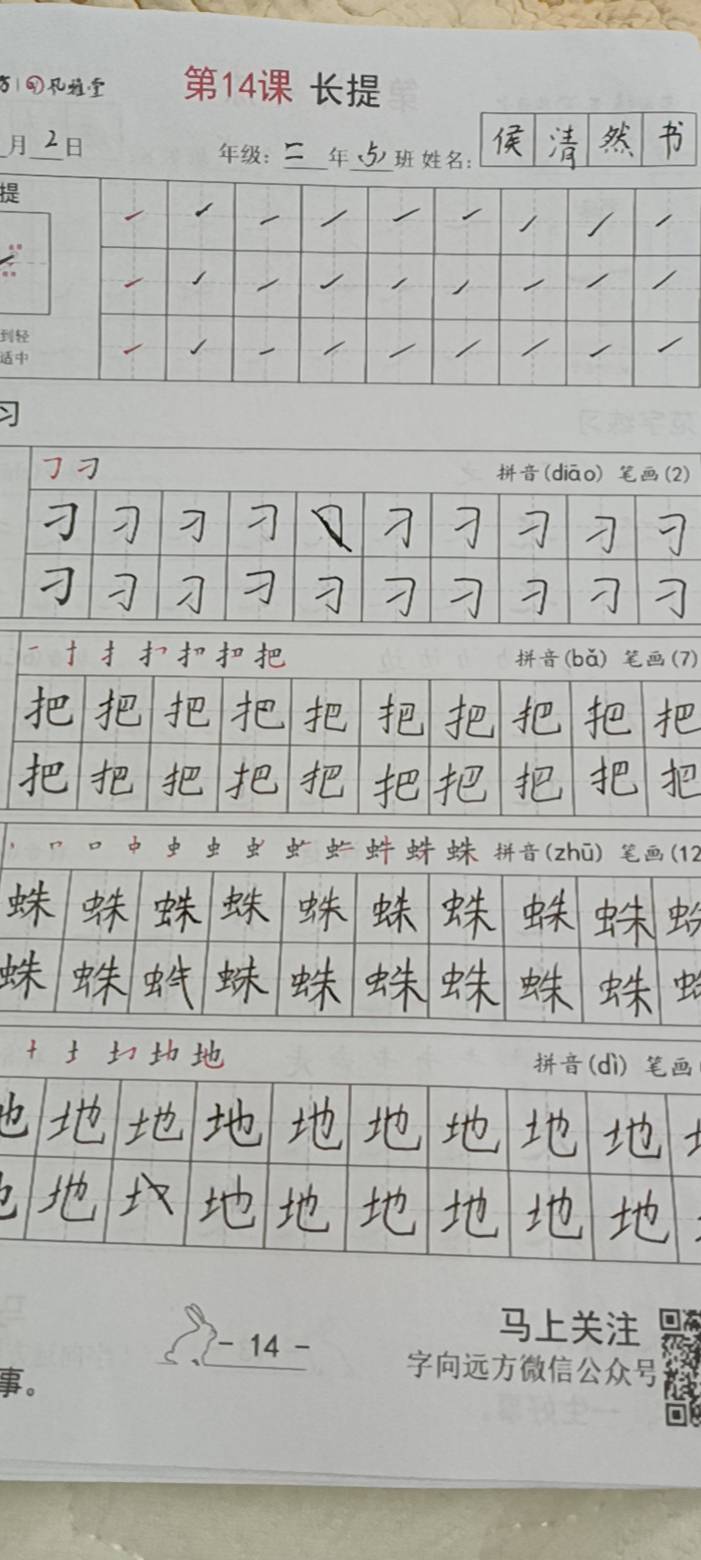 风雅堂 第14课 长提
月2日 年级:二年 班 姓名: 侯清然书
提
到轻
适中
习
刁 拼音(diāo) 笔画(2)
刁 刁 刁 刁 刁 刁 刁 刁 刁
刁 刁 刁 刁 刁 刁 刁 刁 刁 刁
一 十 扌 把 拼音(bǎ) 笔画(7)
把 把 把 把 把 把 把 把 把 把
把 把 把 把 把 把 把 把 把 把
丶 口 中 虫 蛛 拼音(zhū) 笔画(12
蛛 蛛 蛛 蛛 蛛 蛛 蛛 蛛 蛛
蛛 蛛 蛛 蛛 蛛 蛛 蛛 蛛
十 土 地 拼音(dì) 笔画
地 地 地 地 地 地 地 地 地
地 地 地 地 地 地 地
- 14 -
马上关注
字向远方微信公众号
事。